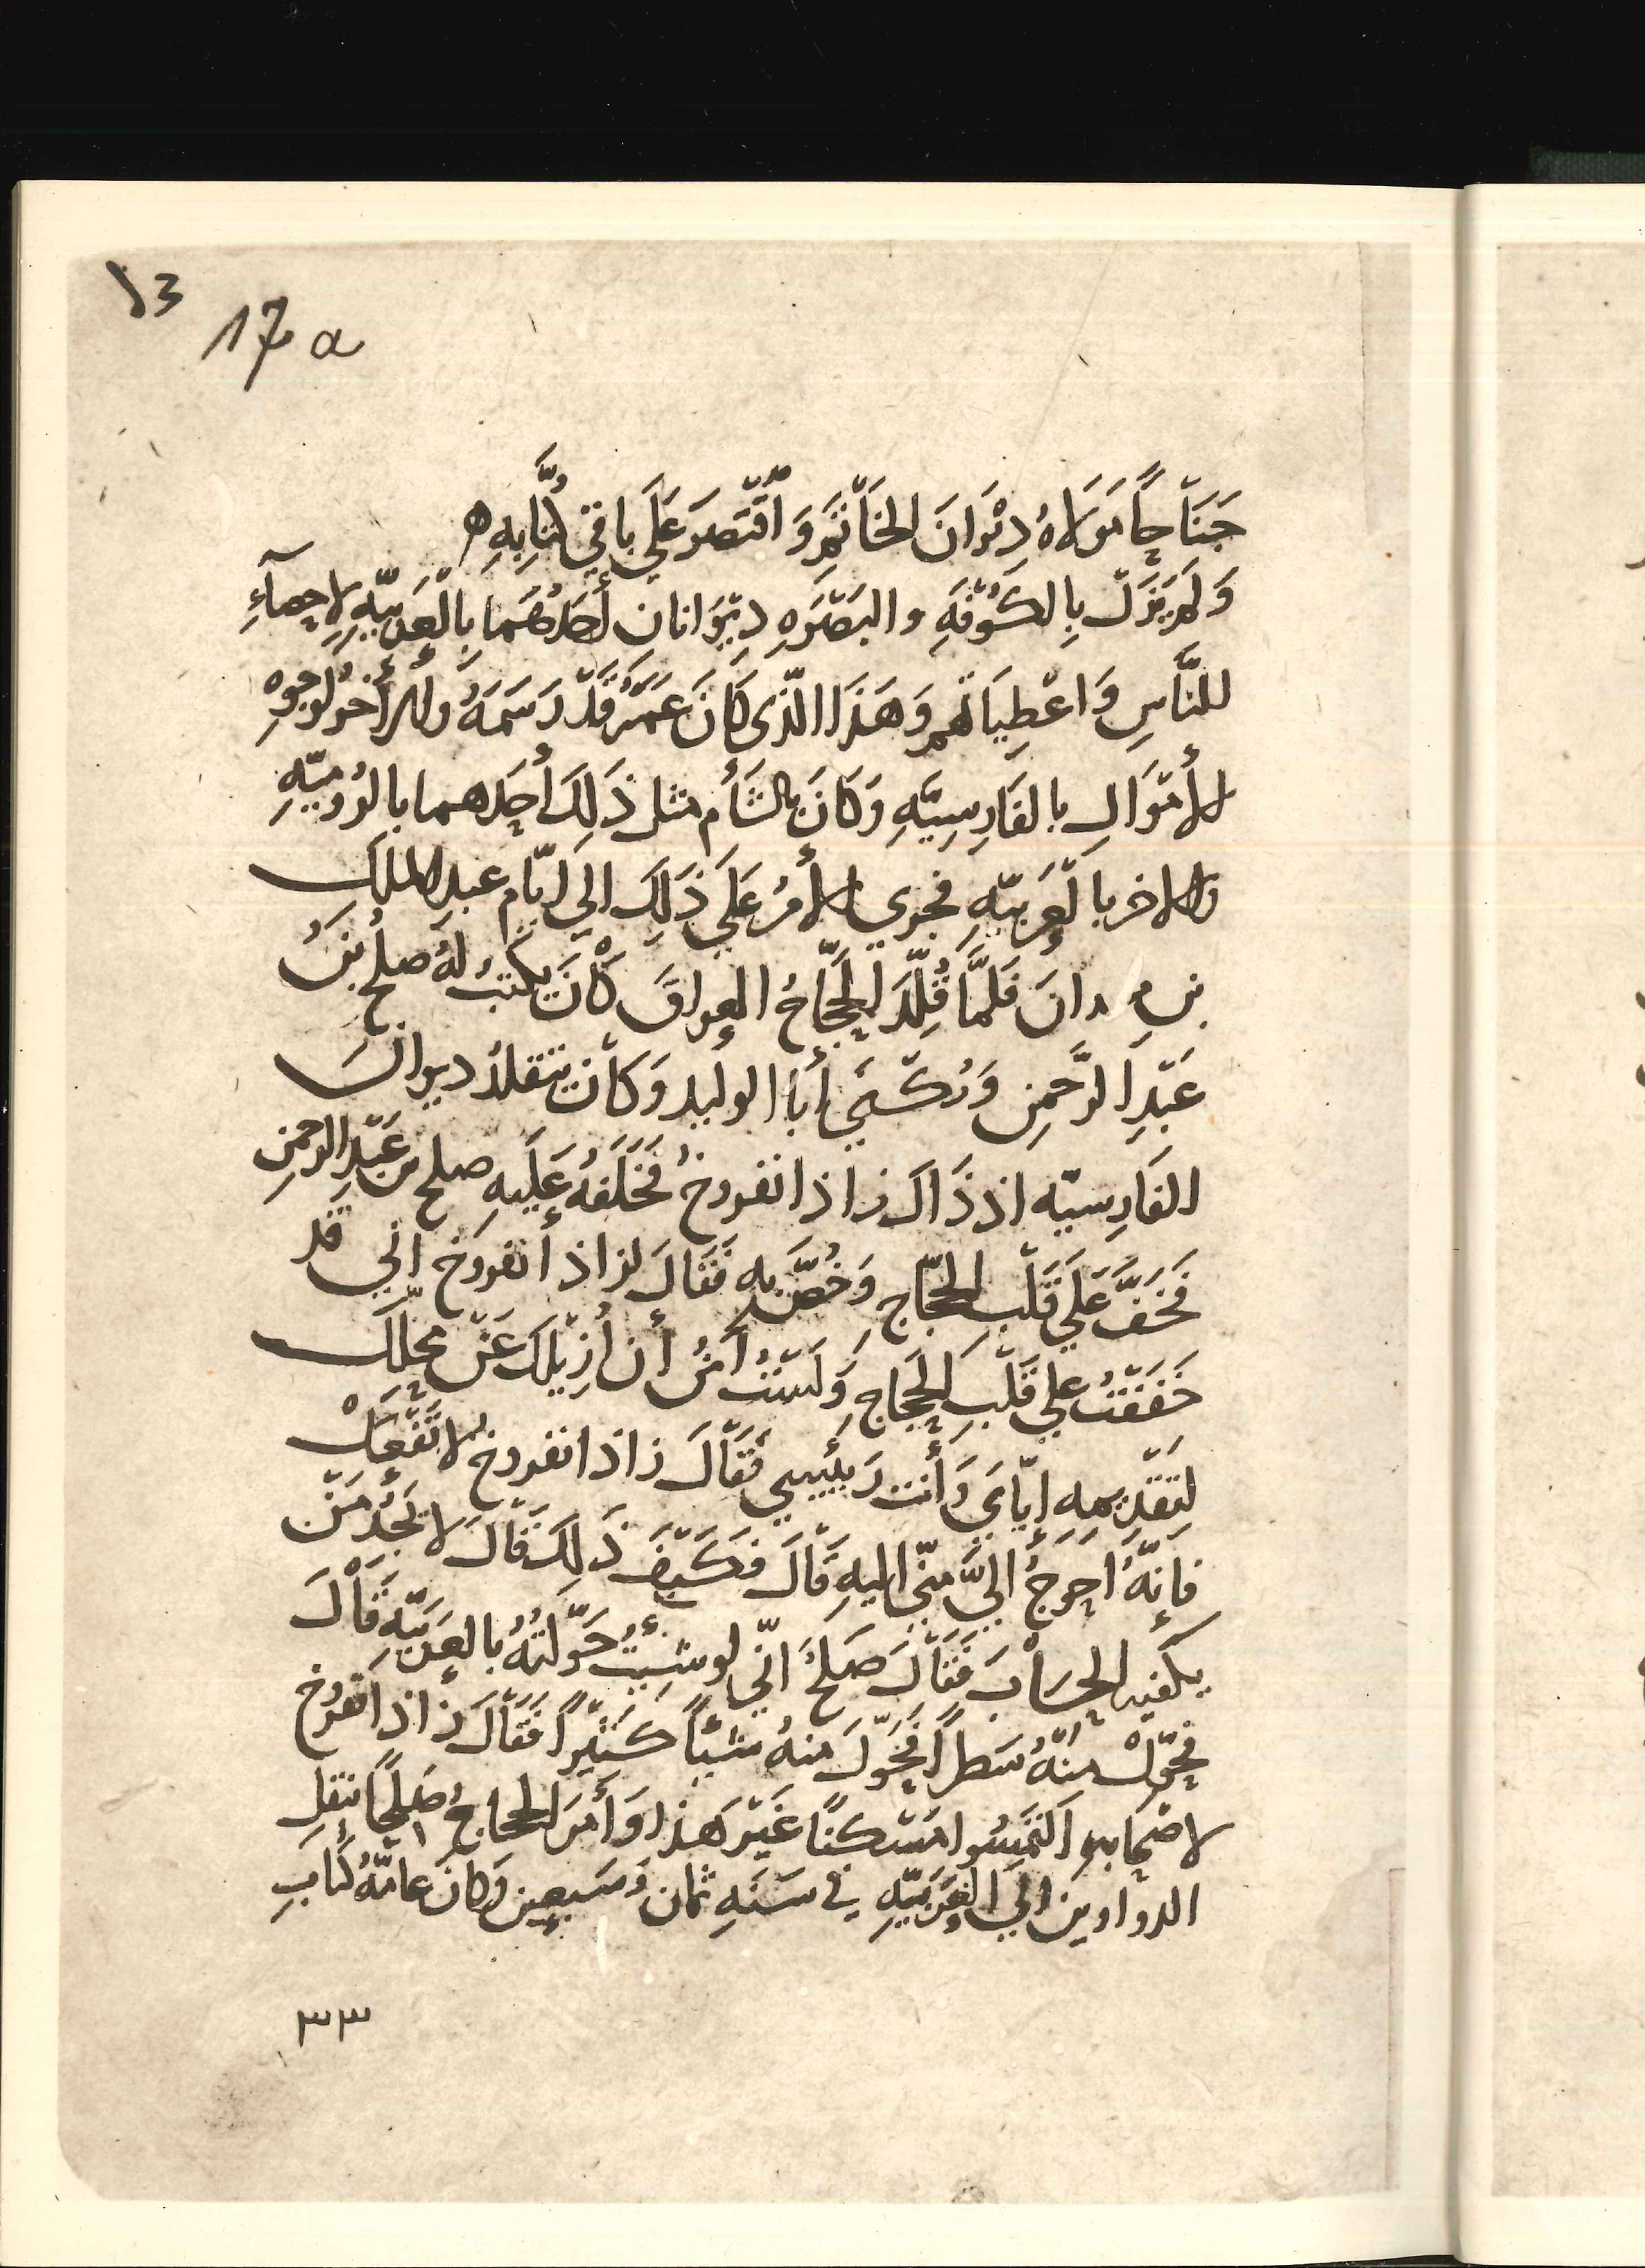 13
17 a
جَنَاحًا مَوْلَاهُ دِيْوَانَ الخَاتَمِ وَاقْتَصَرَ عَلَي باقي كُتَّابِهِ ه
وَلَم يَزَلْ بِالكُوْفَةِ والبَصْرَةِ دِيْوَانانِ أَحَدُهُمَا بِالْعَرَبيّةِ لاِحصآءِ
للنَّاسِ وَاعْطِيَاتهم وَهَذَا الّذى كَانَ عُمَرُ قَدْ رَسَمَهُ والأَخرُ لوجوهِ
الأَمْوَالِ بالفَارِسِيَّةِ وَكَانَ بالشَأم مثل ذَلِكَ أَحَدهما بالرُوميّةِ
والاخر بالْعَرَبيّةِ فجري الأَمْرُ عَلَي ذَلِكَ الي ايّام عبد الملك
بن مروانَ فَلَمَّا قُلِّدَ الحَجّاجُ العراقَ كَانَ يكتُبُ لهُ صلح بنُ
عَبْدِ الرَّحمنِ وَيُكْنَي أَبَا الوليد وَكَانَ يتقلدُ ديوانَ
الفَارِسيّه اذ ذَاكَ زاذانفروخُ فخَلَفَهُ عَلَيهِ صلح بن عَبْدِ الرحمنِ
فَخَفَّ عَلَي قَلْبِ الحجّاجِ وَخُصَّ بهِ فَقَالَ لزاذانفروخ اني قد
خَفَفْتُ علي قَلْبِ الحَجّاجِ وَلَسْتُ آمَنُ أَن أُزِيْلكَ عَنْ محلّكَ
لتَقْدِيمه ايّايَ وَأَنت رَبيْبي فَقَالَ زاذانفروخُ لا تَفْعَلْ
فَإِنّهُ احوجُ اليَّ منّي اليهِ قَالَ فكَيْفَ ذَلِكَ قَالَ لا يَجُدُ مَنْ
يكفيه الحِسَابَ فَقَالَ صَلحُ انّي لو شِئْتُ حَوّلْتُهُ بالعَرَبيّةِ قَالَ
فحَوِّلْ مِنْهُ سَطراً فَحَوّلَ منهُ شيْئاً كَثيْراً فَقَالَ زاذانفروخ
لاصْحَابه الْتَمِسُوا مَسْكنًا غَيْرَ هَذَا وَأَمَرَ الحجاجُ صَلحًا بنقلِ
الدواوين الي العَرَبيّةِ في سَنَهِ ثمان وَسَبعِين وَكانَ عامّةُ كُتّابِ
٣٣